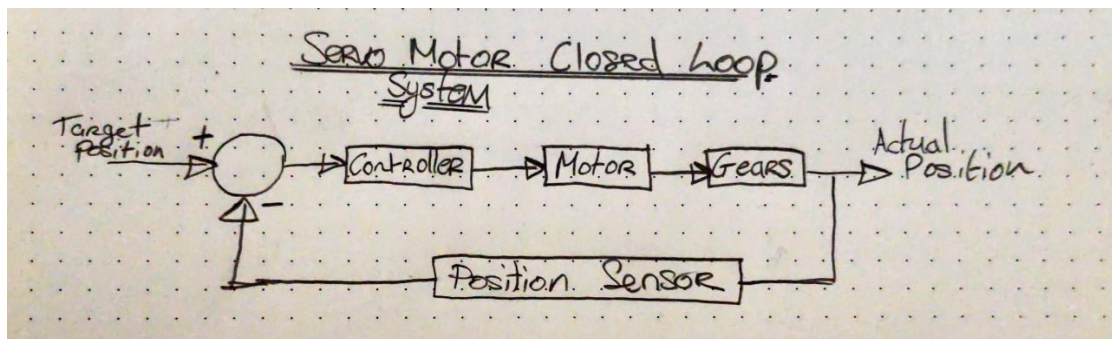 Servo Motor Closed Loop
System
Target
Position
+
Controller
Motor
Gears
Actual
Position
-
Position Sensor